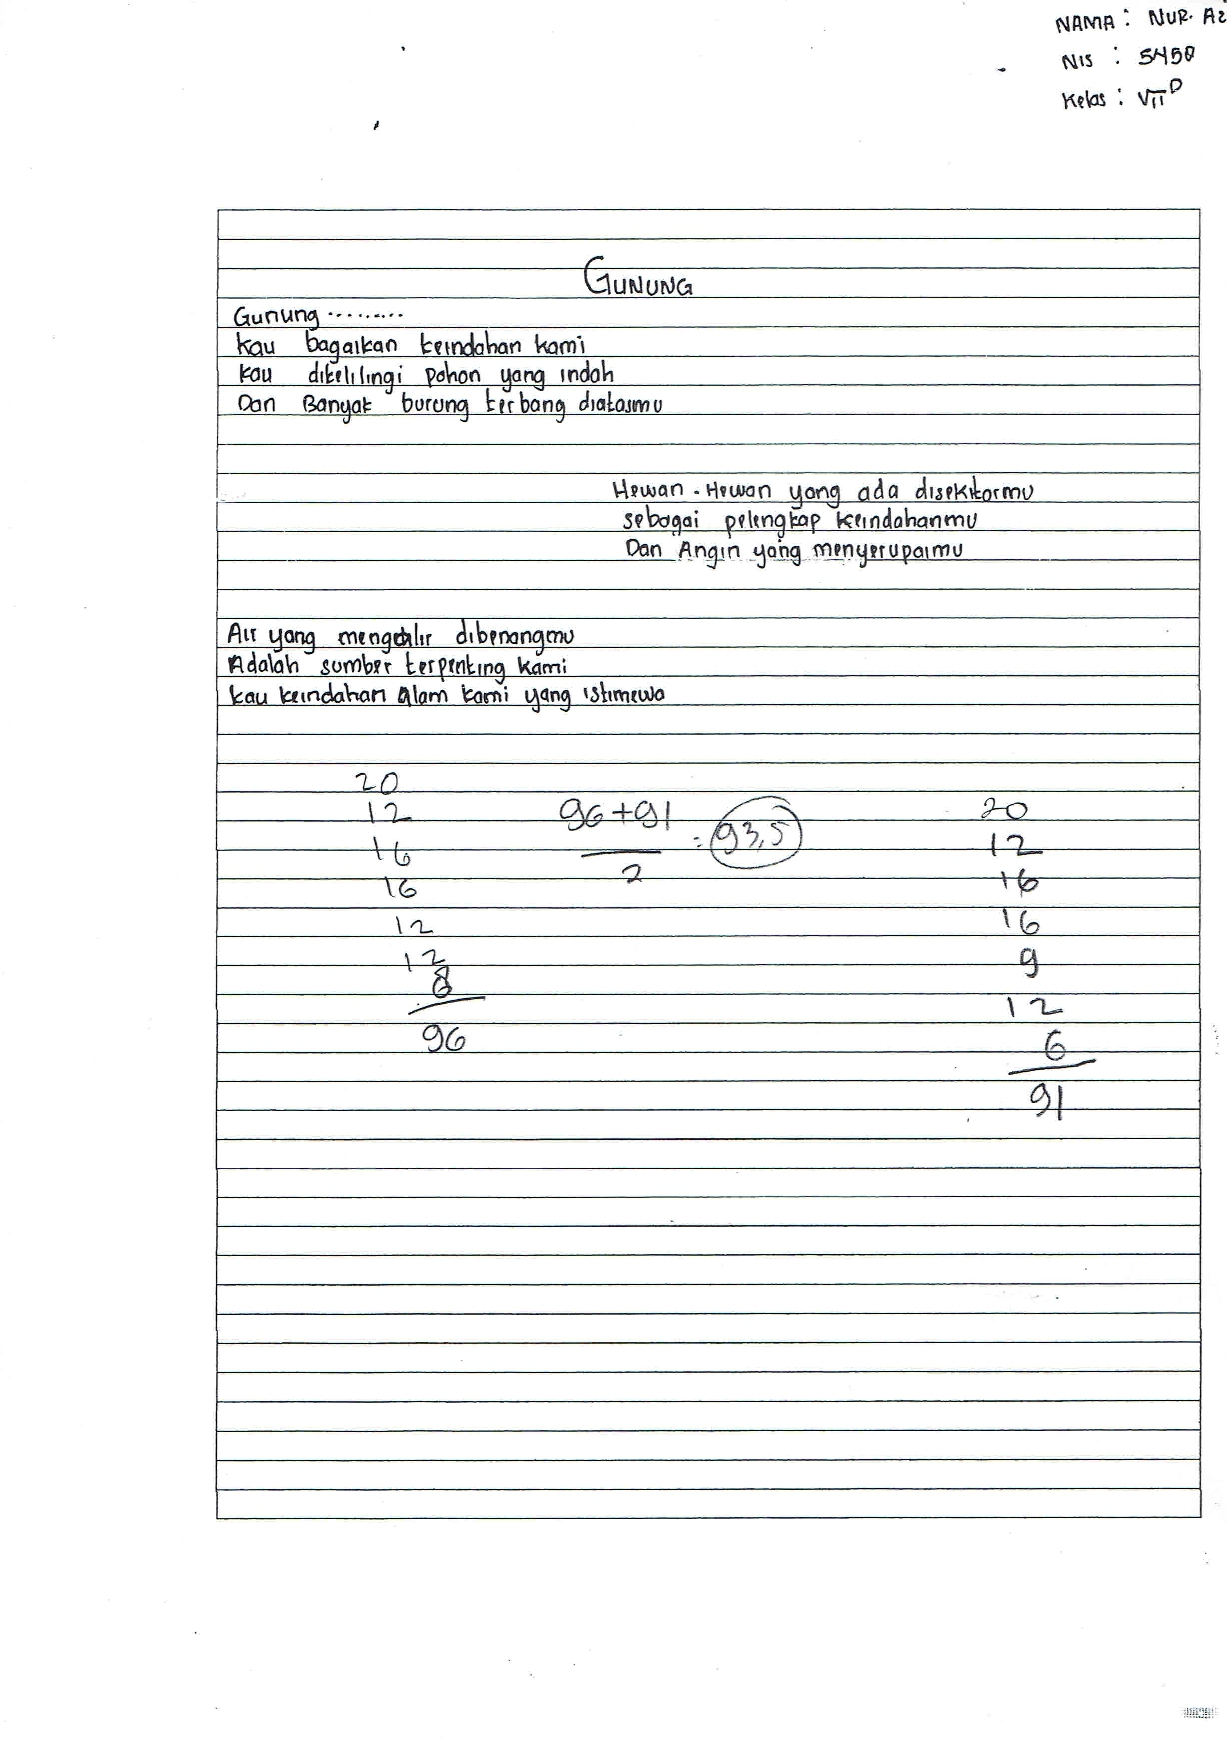 NAMA : NUR. Az
NIS : 5450
Kelas : VII D
GUNUNG
Gunung .........
kau bagaikan keindahan kami
kau dikelilingi pohon yang indah
Dan Banyak burung terbang diatasmu
Hewan - Hewan yang ada disekitarmu
sebagai pelengkap keindahanmu
Dan Angin yang menyerupaimu
Air yang mengalir dibenangmu
Adalah sumber terpenting kami
kau keindahan alam kami yang istimewa
20
12
16
16
12
12
8
96
96+91
2
= 93,5
20
12
16
16
9
12
6
91